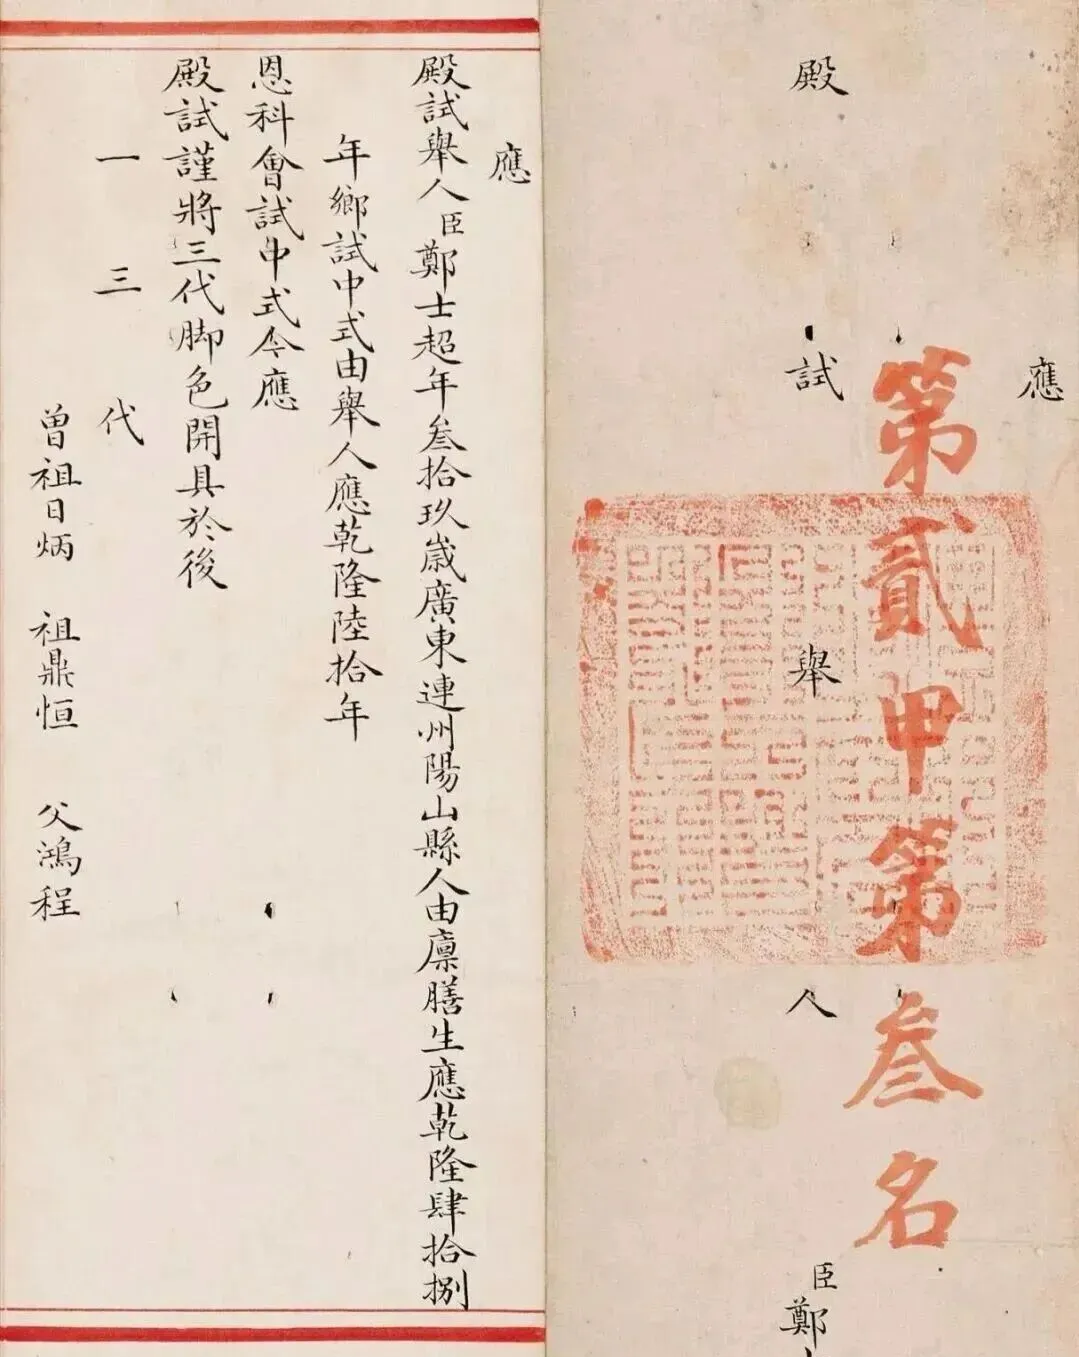 應
第貳甲第叁名
殿試舉人臣鄭
應
殿試舉人臣鄭士超年叁拾玖歲廣東連州陽山縣人由廪膳生應乾隆肆拾捌
年鄉試中式由舉人應乾隆陸拾年
恩科會試中式今應
殿試謹將三代脚色開具於後
一三代
曾祖日炳 祖鼎恒 父鴻程